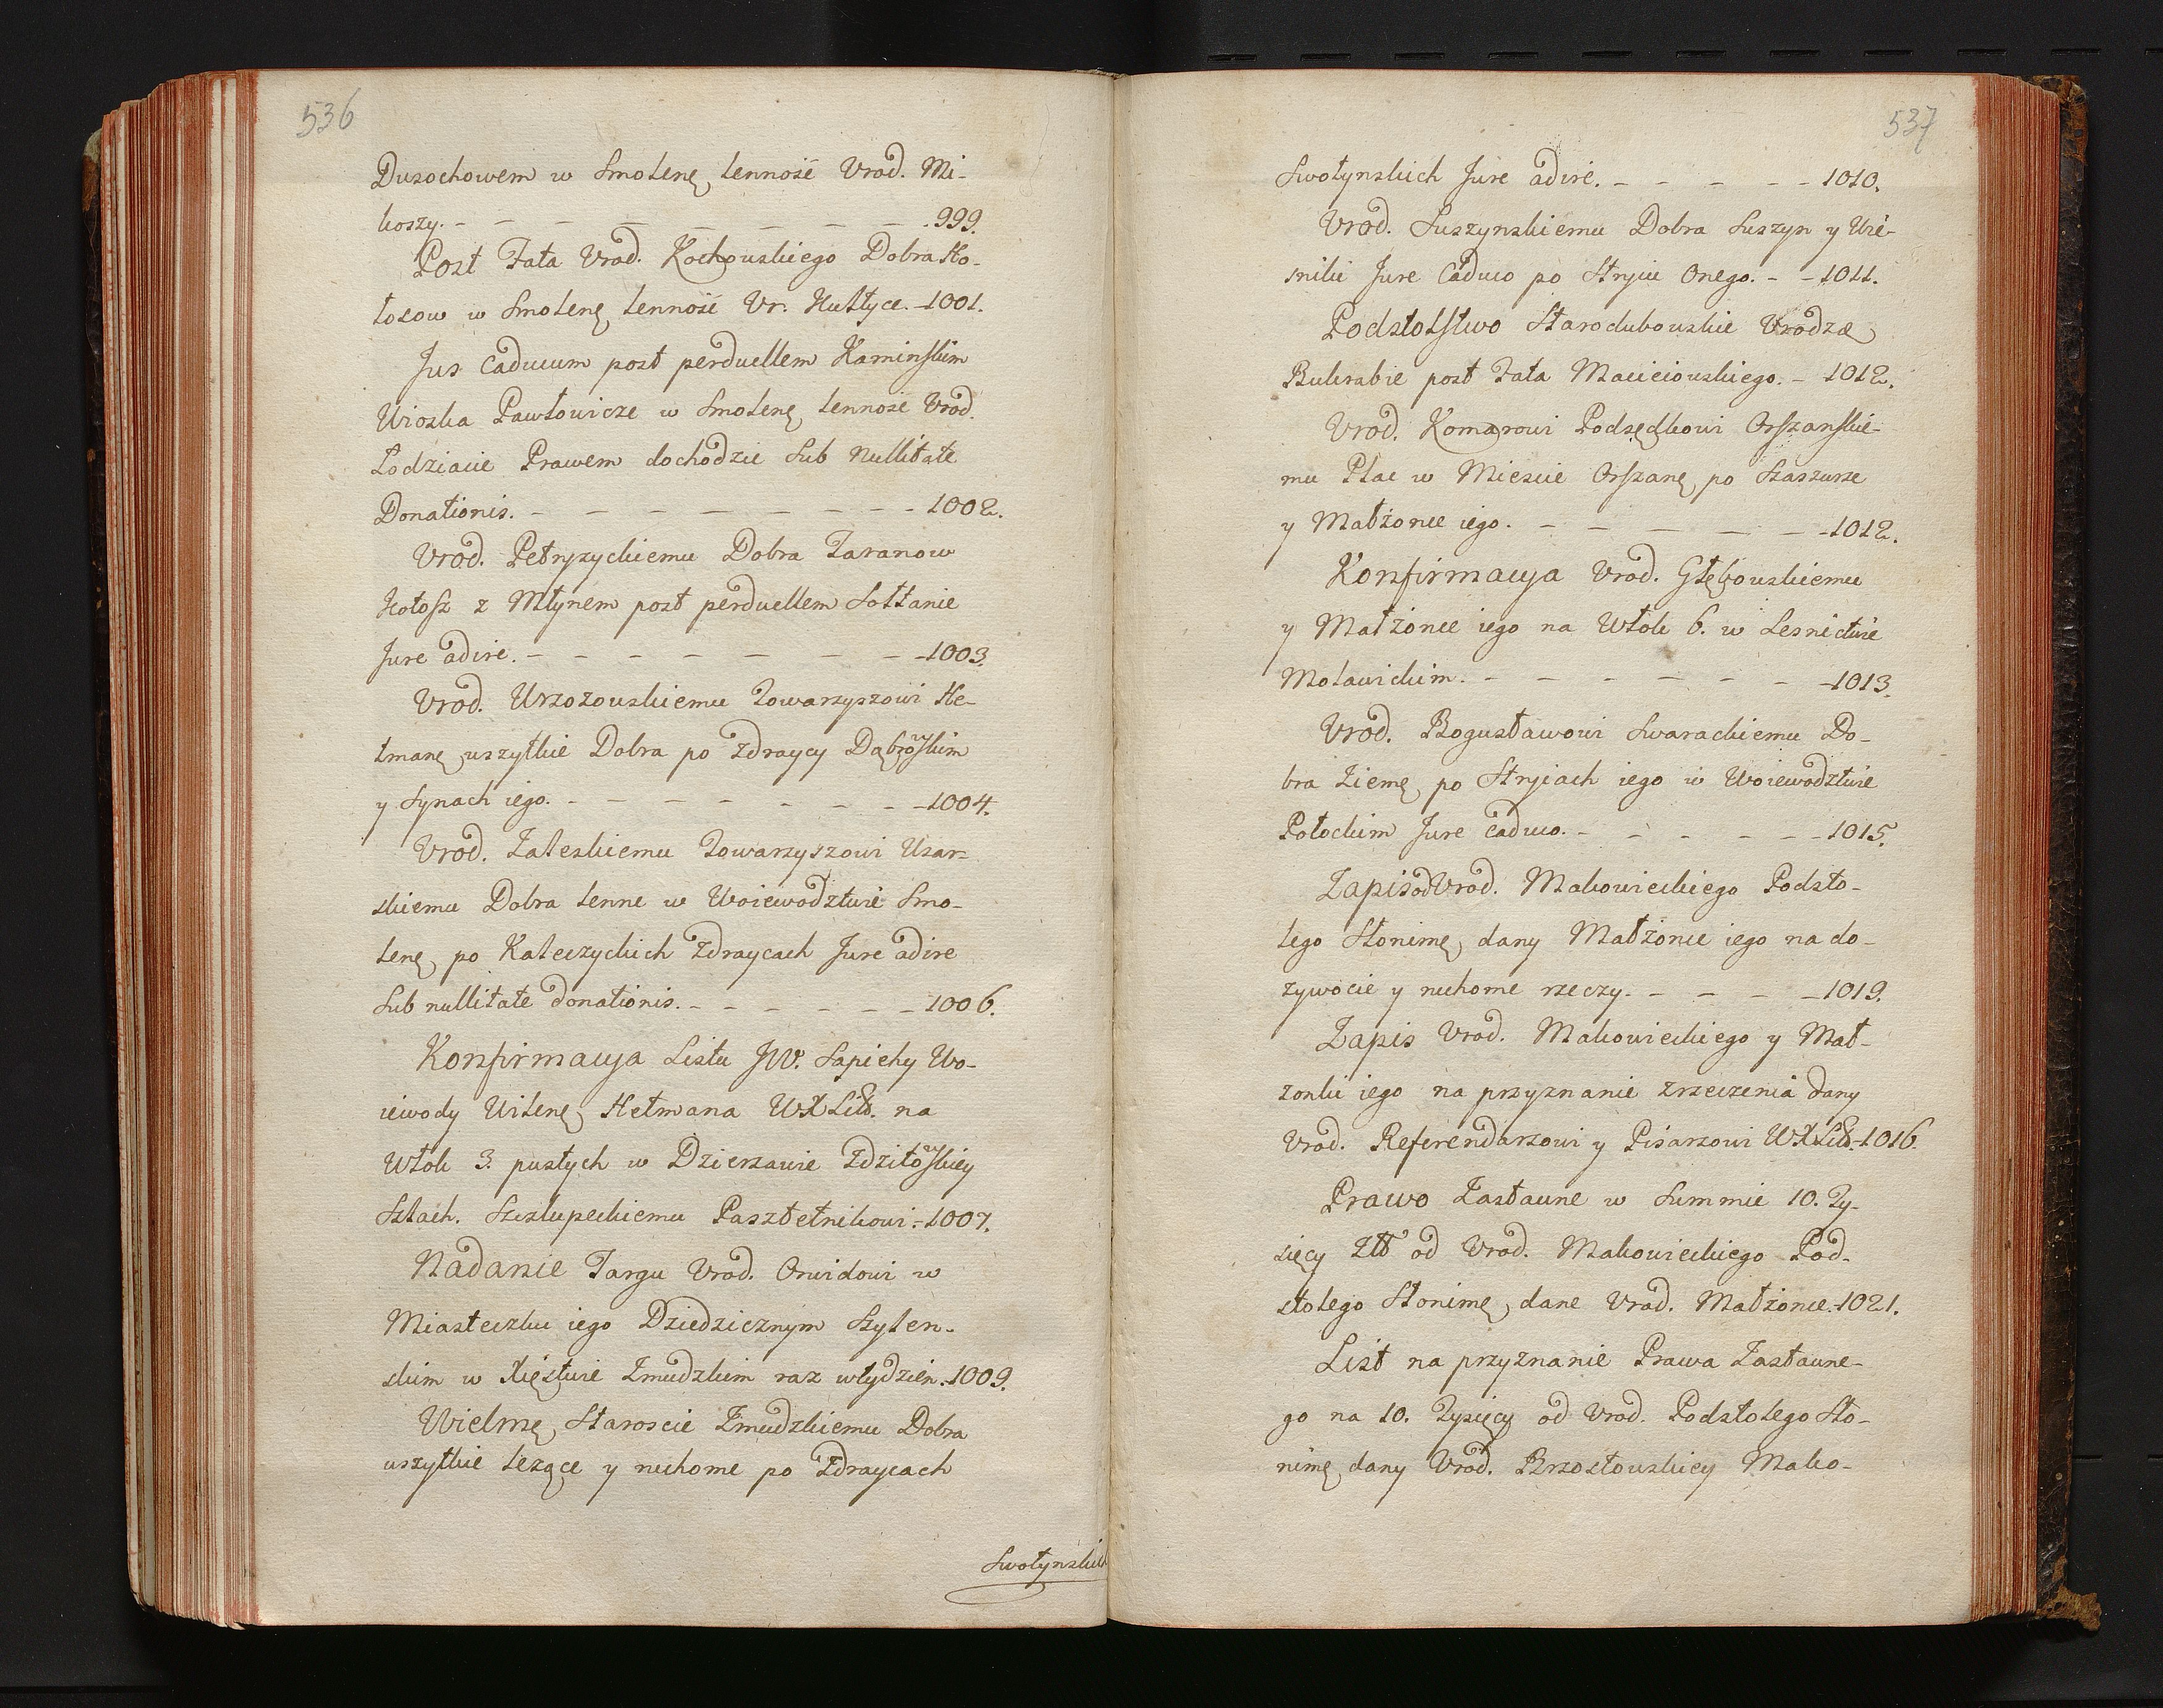 536
Dusochowem w Smolenę lennosć Vrod. Mi-
koszy. - - - - - - - - 999.
Post Fata Vrod. Kochowskiego Dobra Ho-
łosow w Smolenę lennosć Vr. Hułtyce. - 1001.
Jus Caducum post perduellem Kaminskim
Wioska Pawłowicze w Smolenę lennosc Vrod.
Łodziacie Prawem dochodzic Sub Nullitate
Donationis. - - - - - - - - 1002.
Vrod. Petryzyckiemu Dobra Taranow
Hołosz z Młynem post perduellem Sołtanie
Jure adire. - - - - - - - - 1003.
Vrod. Wrzozowskiemu Towarzyszowi He-
tmanę wszytkie Dobra po Zdraycy Dąbrowskim
y Synach iego. - - - - - - - - 1004.
Vrod. Zaleskiemu Towarzyszowi Usar-
skiemu Dobra lenne w Woiewodztwie Smo-
lenę po Kaleczyckich Zdraycach Jure adire
Sub nullitate donationis. - - - - - - 1006.
Konfirmacya Listu JW. Sapiehy Wo-
iewody Wilenę Hetmana WXLitt. na
Włok 3. pustych w Dzierzawie Zdzitowskiey
Szlach. Szczlupeckiemu Pasztetnikowi. - 1007.
Nadanie Targu Vrod. Orwidowi w
Miasteczku iego Dziedzicznym Szylen-
skim w Xięstwie Zmudzkim raz wtydzien. 1009.
Wielmę Staroscie Zmudzkiemu Dobra
wszytkie lezące y ruchome po Zdraycach
Swołynskich
537
Swołynskich Jure adire. - - - - - 1010.
Vrod. Suszynskiemu Dobra Suszyn y Wie-
sniki Jure Caduco po Stryiu Onego. - - 1011.
Podstolstwo Starodubowskie Vrodzę
Bukrabie post Fata Maciciowskiego. - 1012.
Vrod. Komarowi Podsędkowi Orszanskie-
mu Plac w Miescie Orszanę po Szaszurze
y Małżonce iego. - - - - - - 1012.
Konfirmacya Vrod. Głębowskiemu
y Małżonce iego na Włok 6. w Lesnictwie
Motawickim. - - - - - - - 1013.
Vrod. Bogusławowi Swarackiemu Do-
bra Ziemę po Stryiach iego w Woiewodztwie
Połockim Jure Caduco. - - - - - 1015.
Zapis od Vrod. Makowieckiego Podsto-
lego Słonimę dany Małżonce iego na do-
zywocie y ruchome rzeczy. - - - - 1019.
Zapis Vrod. Makowieckiego y Mał-
zonki iego na przyznanie zrzeczenia dany
Vrod. Referendarzowi y Pisarzowi WXLitt. - 1016.
Prawo Zastawne w Summie 10. Ty-
sięcy Złł od Vrod. Makowieckiego Pod-
stolego Słonimę dane Vrod. Małżonce. - 1021.
List na przyznanie Prawa Zastawne-
go na 10. Tysięcy od Vrod. Podstolego Sło-
nimę dany Vrod. Brzostowskiey Mako-